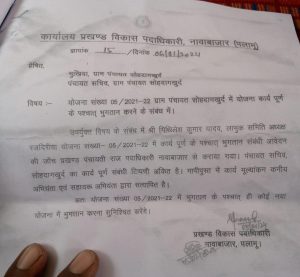 कार्यालय प्रखण्ड विकास पदाधिकारी, नावाबाजार (पलामू)
ज्ञापांक 15 /दिनांक 06/01/2024
प्रेषित,
मुखिया, ग्राम पंचायत सोहदागखुर्द
पंचायत सचिव, ग्राम पंचायत सोहदागखुर्द
विषय:- योजना संख्या 05/2021-22 ग्राम पंचायत सोहदागखुर्द में योजना कार्य पूर्ण
के पश्चात् भुगतान करने के संबंध में।
उपर्युक्त विषय के संबंध में श्री मिथिलेश कुमार यादव, लाभुक समिति अध्यक्ष
योजना संख्या- 05/2021-22 में कार्य पूर्ण के पश्चात् भुगतान संबंधी आवेदन
की जाँच प्रखण्ड पंचायती राज पदाधिकारी नावाबाजार से कराया गया। पंचायत सचिव,
सोहदागखुर्द का कार्य पूर्ण संबंधी टिप्पणी अंकित है। मापीपुस्त में कार्य मूल्यांकन कनीय
अभियंता एवं सहायक अभियंता द्वारा सत्यापित है।
अतः योजना संख्या 05/2021-22 में भुगतान के पश्चात् ही कोई नया
योजना में भुगतान करना सुनिश्चित करेंगे।
प्रखण्ड विकास पदाधिकारी
नावाबाजार, पलामू।